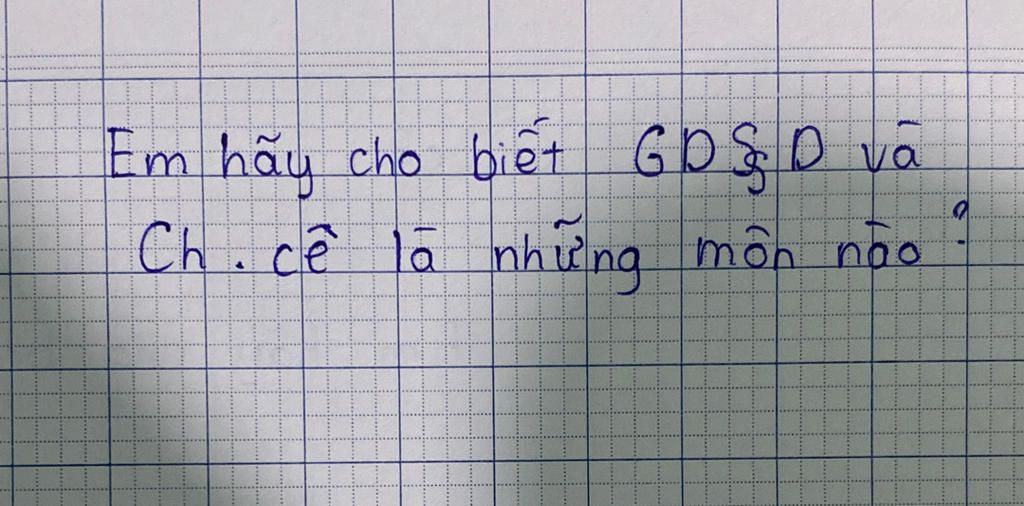 Em hãy cho biết GD§D vā
Ch. cề lā những môn nāo?